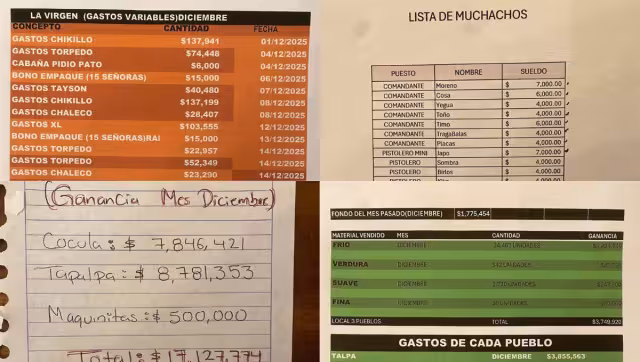 LA VIRGEN (GASTOS VARIABLES)DICIEMBRE
CONCEPTO CANTIDAD FECHA
GASTOS CHIKILLO $137,941 01/12/2025
GASTOS TORPEDO $74,448 04/12/2025
CABAÑA PIDIO PATO $6,000 04/12/2025
BONO EMPAQUE (15 SEÑORAS) $15,000 06/12/2025
GASTOS TAYSON $40,480 07/12/2025
GASTOS CHIKILLO $137,199 08/12/2025
GASTOS CHALECO $28,407 08/12/2025
GASTOS XL $103,555 12/12/2025
BONO EMPAQUE (15 SEÑORAS)RAI $15,000 13/12/2025
GASTOS TORPEDO $22,957 14/12/2025
GASTOS TORPEDO $52,349 14/12/2025
GASTOS CHALECO $23,290 14/12/2025
LISTA DE MUCHACHOS
PUESTO NOMBRE SUELDO
COMANDANTE Moreno $ 7,000.00
COMANDANTE Cosa $ 6,000.00
COMANDANTE Yegua $ 4,000.00
COMANDANTE Toño $ 4,000.00
COMANDANTE Timo $ 6,000.00
COMANDANTE TragaBalas $ 4,000.00
COMANDANTE Placas $ 4,000.00
PISTOLERO MINI Japo $ 7,000.00
PISTOLERO Sombra $ 4,000.00
PISTOLERO $ 4,000.00
(Ganancia Mes Diciembre)
Cocula: $ 7,846,421
Tapalpa: $ 8,781,353
Maquinitas: $ 500,000
Total: $17,127,774
FONDO DEL MES PASADO(DICIEMBRE) $1,775,454
MATERIAL VENDIDO MES CANTIDAD GANANCIA
FRIO DICIEMBRE
VERDURA DICIEMBRE
SUAVE DICIEMBRE
FINA DICIEMBRE
LOCAL 3 PUEBLOS TOTAL $3,749,920
GASTOS DE CADA PUEBLO
TALPA DICIEMBRE $3,855,563